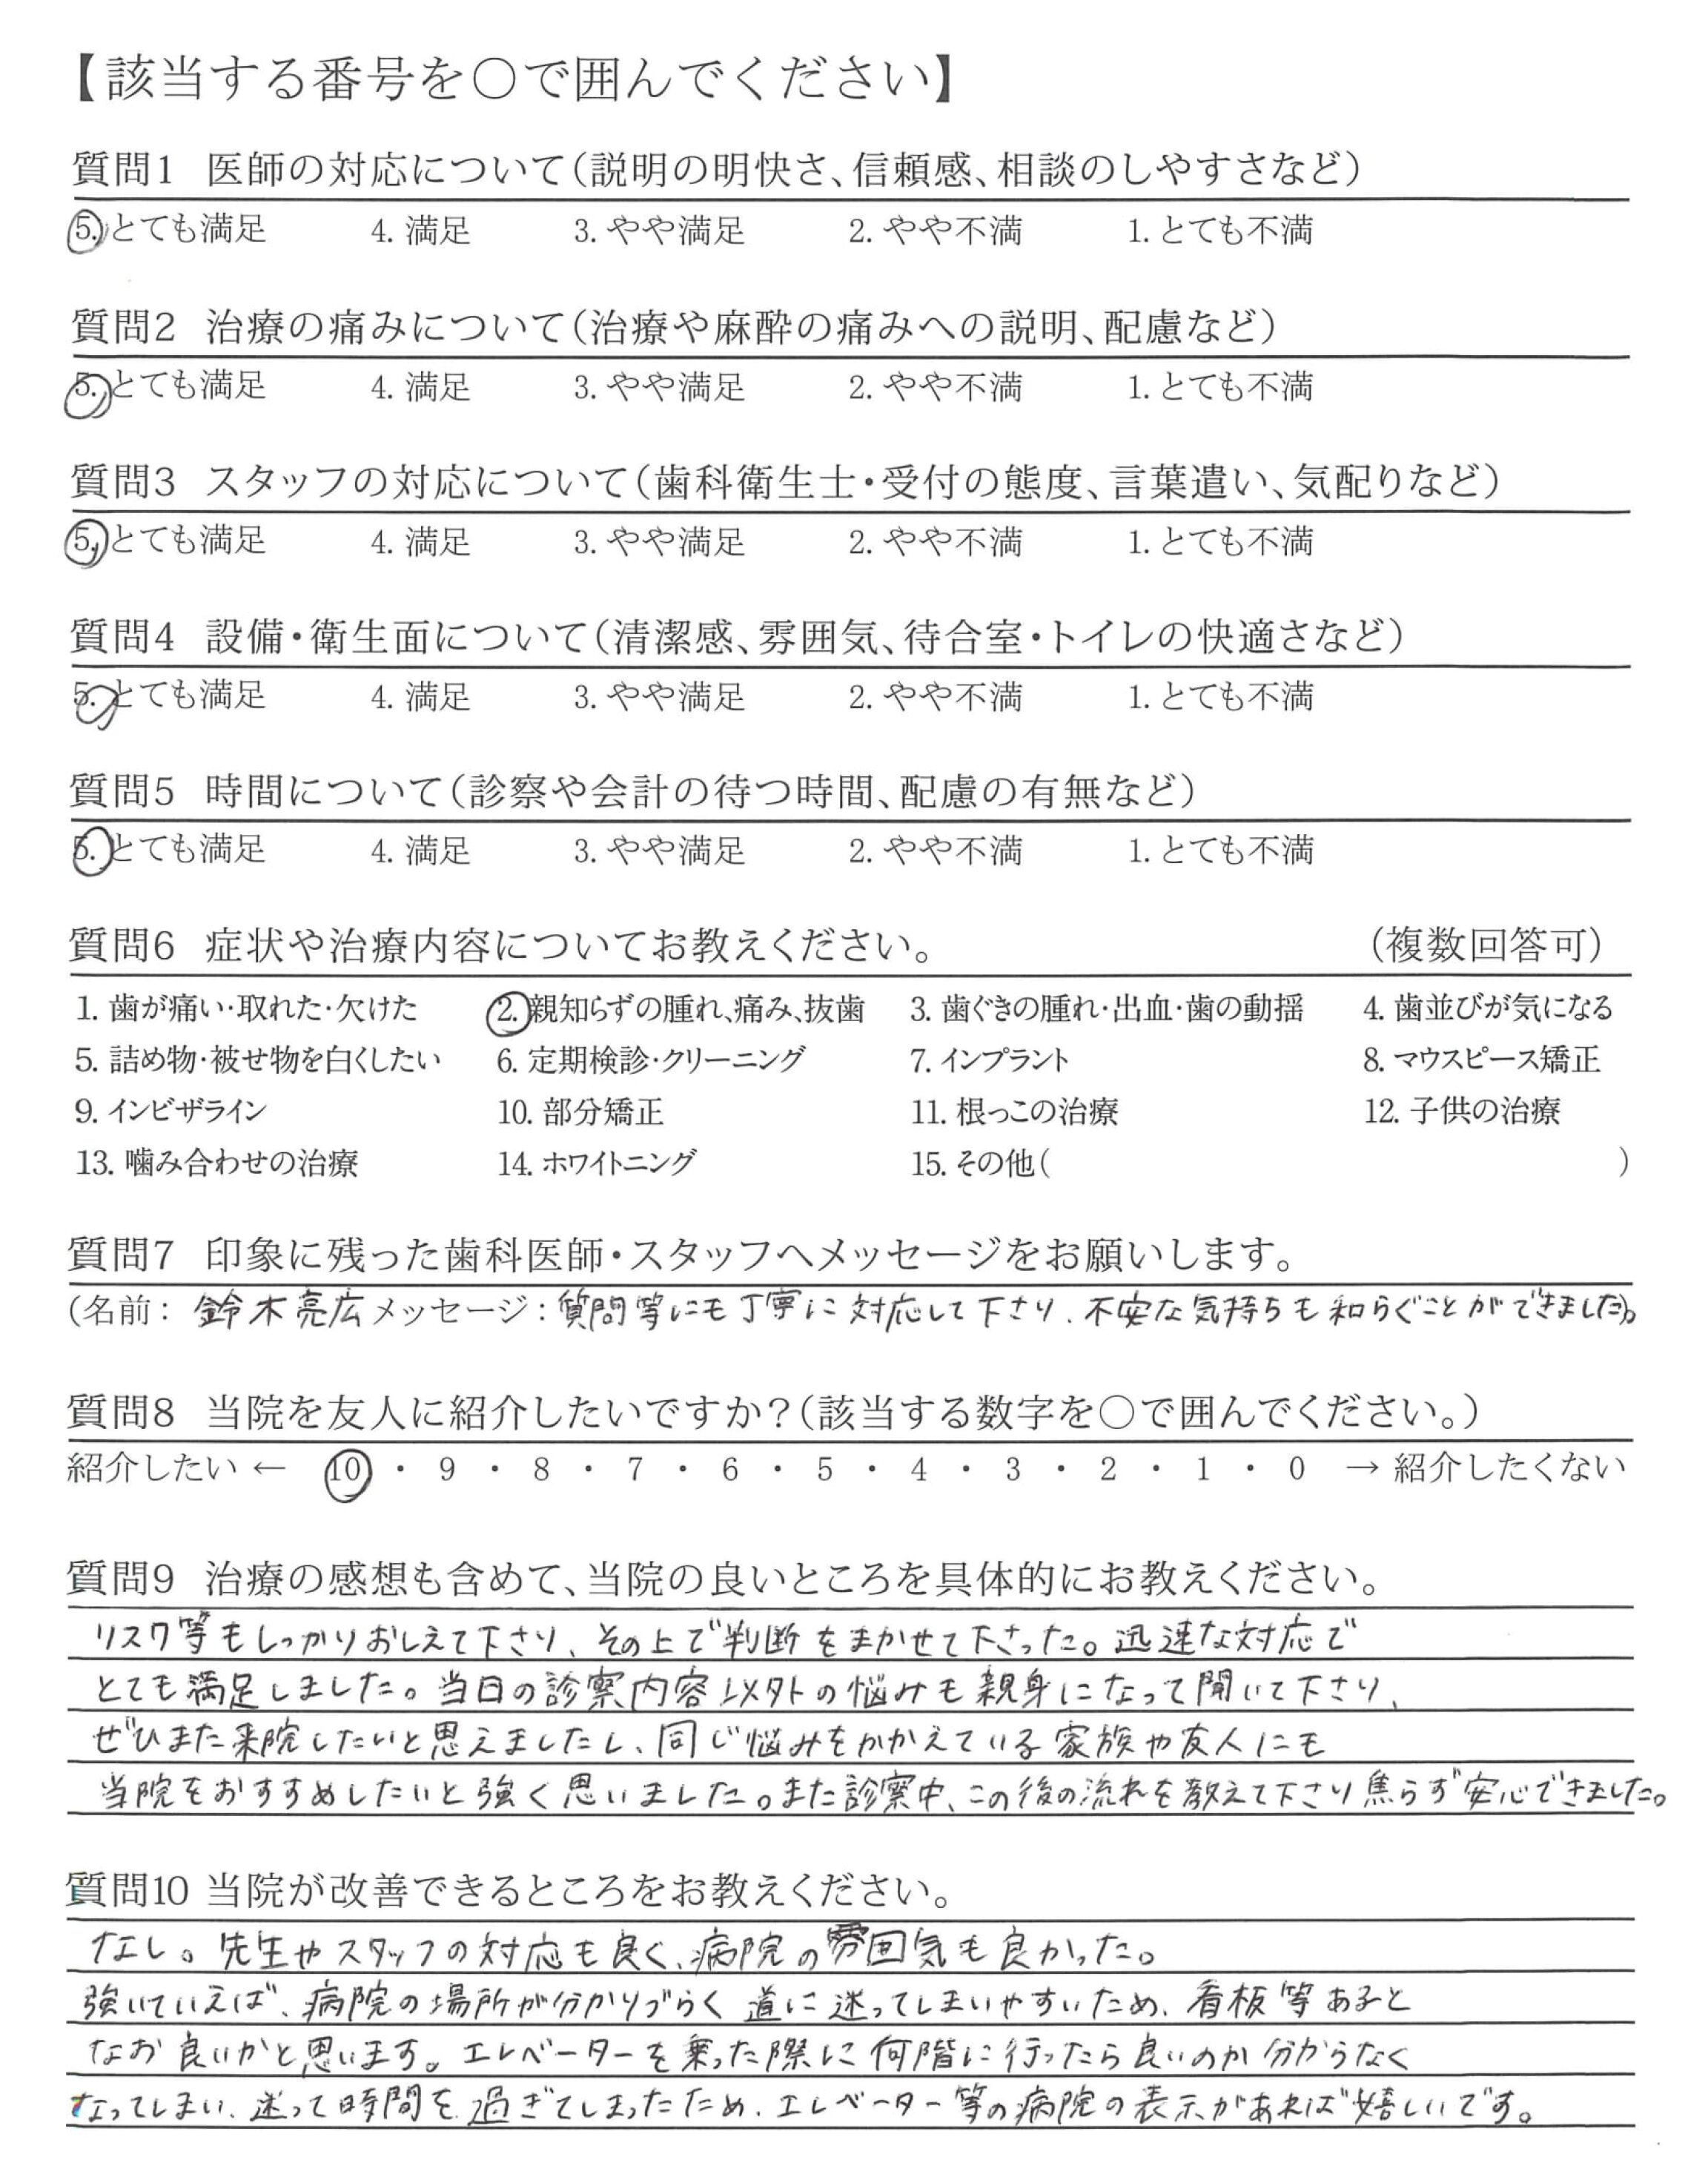 【該当する番号を○で囲んでください】
質問1 医師の対応について(説明の明快さ、信頼感、相談のしやすさなど)
5. とても満足 4. 満足 3. やや満足 2. やや不満 1. とても不満
質問2 治療の痛みについて(治療や麻酔の痛みへの説明、配慮など)
5. とても満足 4. 満足 3. やや満足 2. やや不満 1. とても不満
質問3 スタッフの対応について(歯科衛生士・受付の態度、言葉遣い、気配りなど)
5. とても満足 4. 満足 3. やや満足 2. やや不満 1. とても不満
質問4 設備・衛生面について(清潔感、雰囲気、待合室・トイレの快適さなど)
5. とても満足 4. 満足 3. やや満足 2. やや不満 1. とても不満
質問5 時間について(診察や会計の待つ時間、配慮の有無など)
5. とても満足 4. 満足 3. やや満足 2. やや不満 1. とても不満
質問6 症状や治療内容についてお教えください。 (複数回答可)
1. 歯が痛い・取れた・欠けた 2. 親知らずの腫れ、痛み、抜歯 3. 歯ぐきの腫れ・出血・歯の動揺 4. 歯並びが気になる
5. 詰め物・被せ物を白くしたい 6. 定期検診・クリーニング 7. インプラント 8. マウスピース矯正
9. インビザライン 10. 部分矯正 11. 根っこの治療 12. 子供の治療
13. 噛み合わせの治療 14. ホワイトニング 15. その他( )
質問7 印象に残った歯科医師・スタッフへメッセージをお願いします。
(名前: 鈴木亮広 メッセージ: 質問等にも丁寧に対応して下さり、不安な気持ちも和らぐことができました。)
質問8 当院を友人に紹介したいですか?(該当する数字を○で囲んでください。)
紹介したい ← 10 ・ 9 ・ 8 ・ 7 ・ 6 ・ 5 ・ 4 ・ 3 ・ 2 ・ 1 ・ 0 → 紹介したくない
質問9 治療の感想も含めて、当院の良いところを具体的にお教えください。
リスク等もしっかりおしえて下さり、その上で判断をまかせて下さった。迅速な対応で
とても満足しました。当日の診察内容以外の悩みも親身になって聞いて下さり、
ぜひまた来院したいと思えましたし、同じ悩みをかかえている家族や友人にも
当院をおすすめしたいと強く思いました。また診察中、この後の流れを教えて下さり焦らず安心できました。
質問10 当院が改善できるところをお教えください。
なし。先生やスタッフの対応も良く、病院の雰囲気も良かった。
強いていえば、病院の場所が分かりづらく道に迷ってしまいやすいため、看板等あると
なお良いかと思います。エレベーターを乗った際に何階に行ったら良いのか分からなく
なってしまい、迷って時間を過ぎてしまったため、エレベーター等の病院の表示があれば嬉しいです。